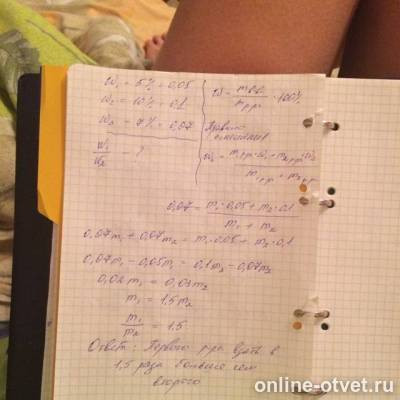 w₁ = 5% = 0,05
w₂ = 10% = 0,1
w₃ = 7% = 0,07
w = mр.в. / mр-ра · 100%
Правило
смешения
0,07 = m₁·0,05 + m₂·0,1 / m₁ + m₂
0,07m₁ + 0,07m₂ = m₁·0,05 + m₂·0,1
0,07m₁ - 0,05m₁ = 0,1m₂ - 0,07m₂
0,02m₁ = 0,03m₂
m₁ = 1,5m₂
m₁ / m₂ = 1,5
Ответ: Первого р-ра взять в
1,5 раза больше чем
второго
online-otvet.ru